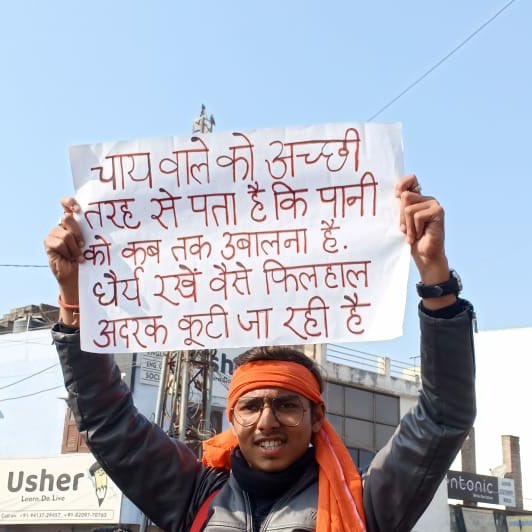 चाय वाले को अच्छी
तरह से पता है कि पानी
को कब तक उबालना है.
धैर्य रखें वैसे फिलहाल
अदरक कूटी जा रही है
Usher
Learn. Do. Live
entonic